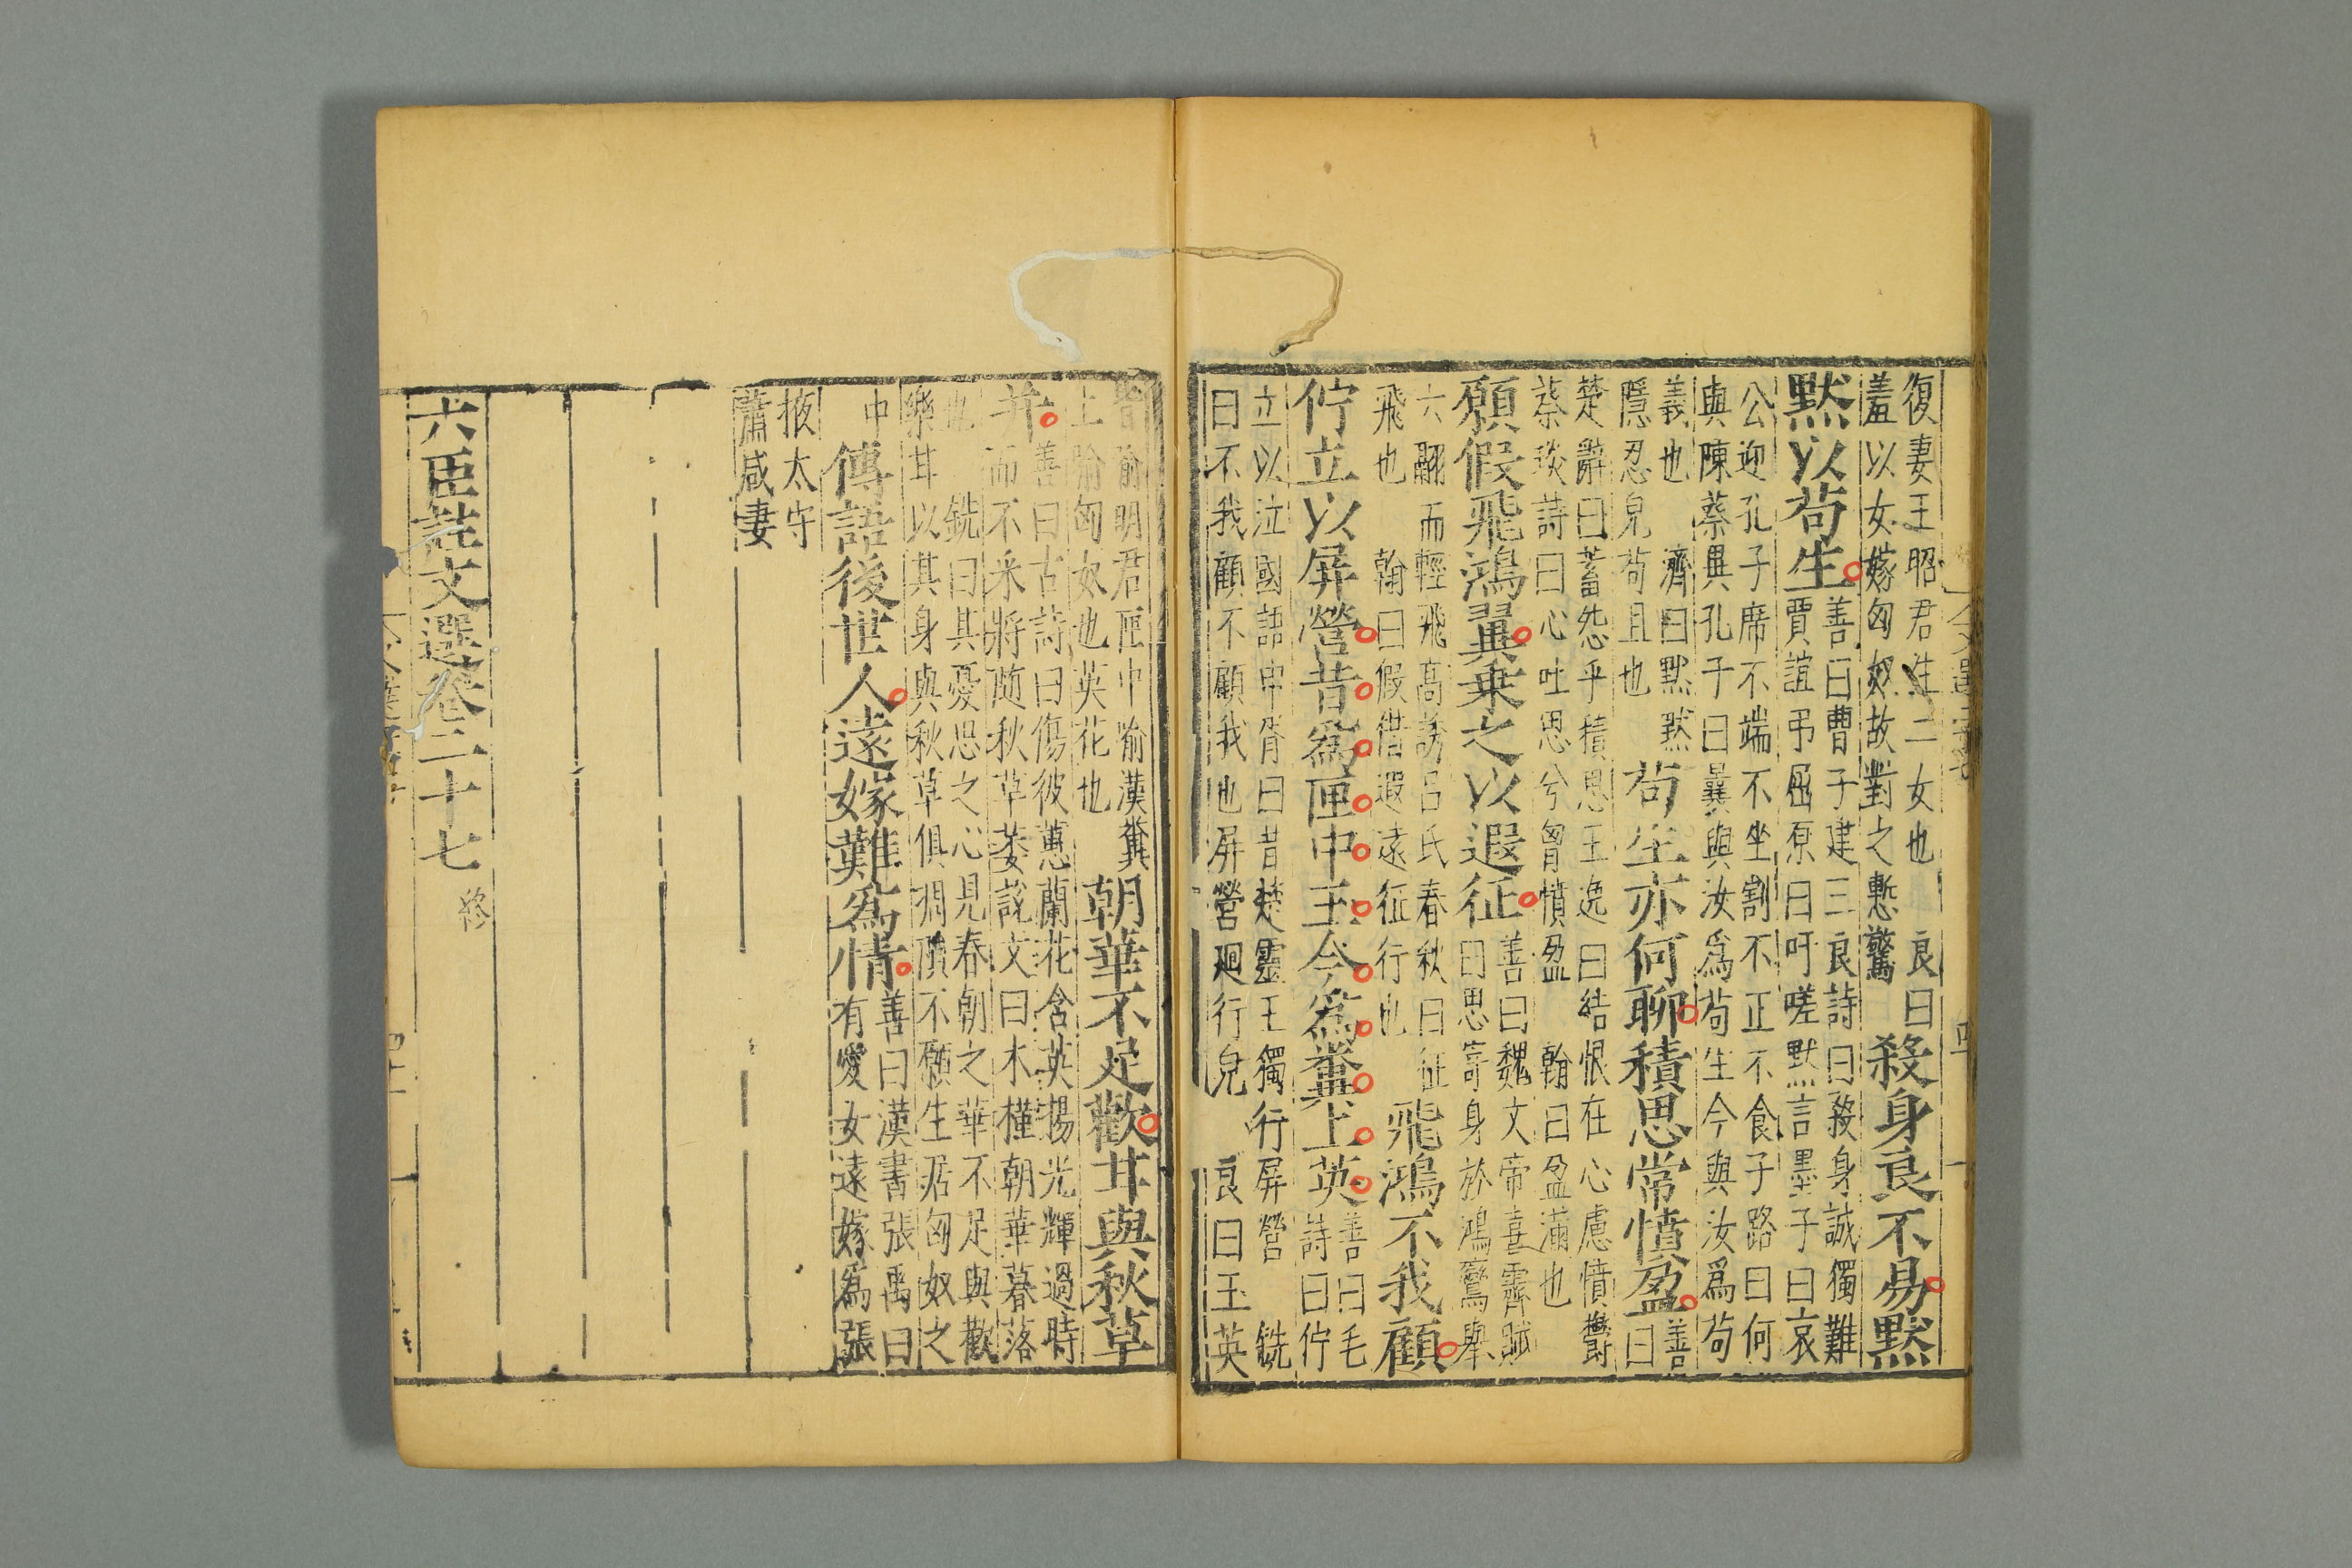 復妻王昭君生二女也　良曰
羞以女嫁匈奴故對之慙驚
殺身良不易默
默以苟生
善曰曹子建三良詩曰殺身誠獨難
賈誼弔屈原曰吁嗟默言墨子曰哀
公迎孔子席不端不坐割不正不食子路曰何
與陳蔡異孔子曰曩與汝爲苟生今與汝爲苟
義也　濟曰默默
隱忍皃苟且也
苟生亦何聊積思常憤盈
善
曰
楚辭曰蓄怨乎積思王逸曰結恨在心慮憤鬱
蔡琰詩曰心吐思兮匈憤盈　翰曰盈滿也
願假飛鴻翼乗之以遐征
善曰魏文帝喜霽賦
曰思寄身於鴻鸞舉
六翮而輕飛高誘呂氏春秋曰征
飛也　翰曰假借遐遠征行也
飛鴻不我顧
佇立以屏營昔爲匣中玉今爲糞上英
善曰毛
詩曰佇
立以泣國語申胥曰昔楚靈王獨行屏營　銑
曰不我顧不顧我也屏營廻行皃　良曰玉英
皆喻明君匣中喻漢糞
上喻匈奴也英花也
朝華不足歡甘與秋草
并
善曰古詩曰傷彼蕙蘭花含英揚光輝過時
而不采將隨秋草萎説文曰木槿朝華暮落
也　銑曰其憂思之心見春朝之華不足與歡
樂甘以其身與秋草俱凋隕不願生居匈奴之
中
傳語後世人遠嫁難爲情
善曰漢書張禹曰
有愛女遠嫁爲張
掖太守
蕭咸妻
六臣註文選卷二十七